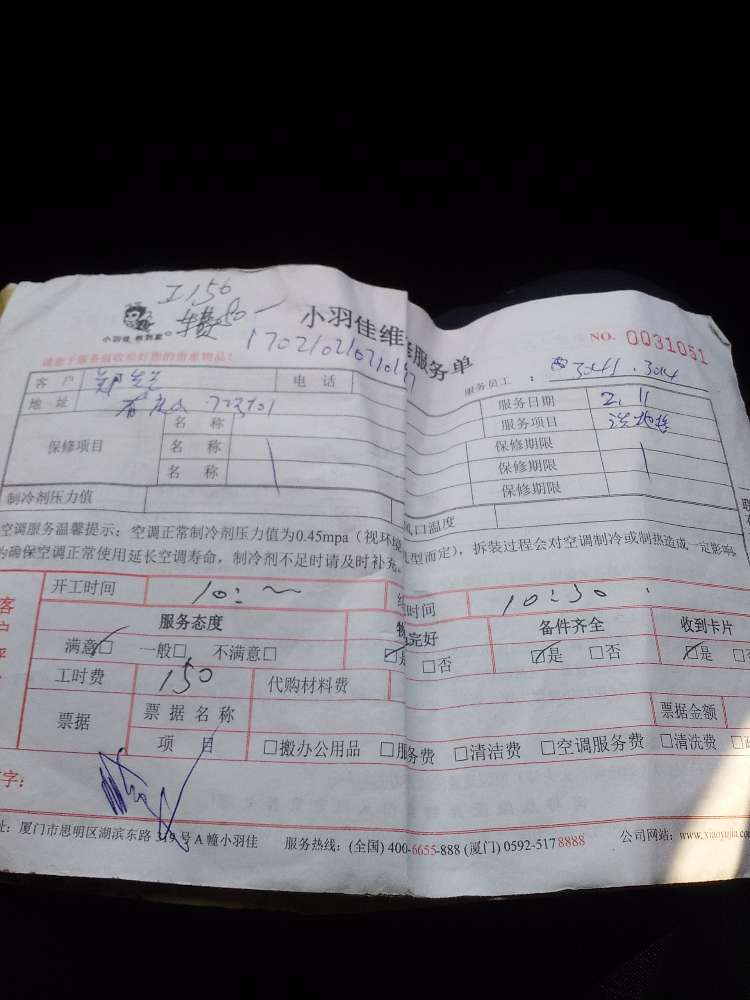 工150
小羽佳 救到家
小羽佳维修服务单
NO. 0031051
请您于服务前收检好您的贵重物品!
服务员工:
客户 郑先生 电话 服务日期 2.11
地址 服务项目
保修项目 名称 保修期限
名称 保修期限
名称 保修期限
制冷剂压力值 风口温度
空调服务温馨提示:空调正常制冷剂压力值为0.45mpa(视环境 机型而定),拆装过程会对空调制冷或制热造成一定影响,
为确保空调正常使用延长空调寿命,制冷剂不足时请及时补充。
开工时间 10: 时间 10:30
服务态度 完好 备件齐全 收到卡片
满意□ 一般□ 不满意□ □是 □否 □是 □否 □是 □
工时费 150 代购材料费
票据 票据名称 票据金额
项目 □搬办公用品 □服务费 □清洁费 □空调服务费 □清洗费
字:
址:厦门市思明区湖滨东路319号A幢小羽佳 服务热线:(全国) 400-6655-888 (厦门) 0592-5178888 公司网站:www.xiaoyujia.co